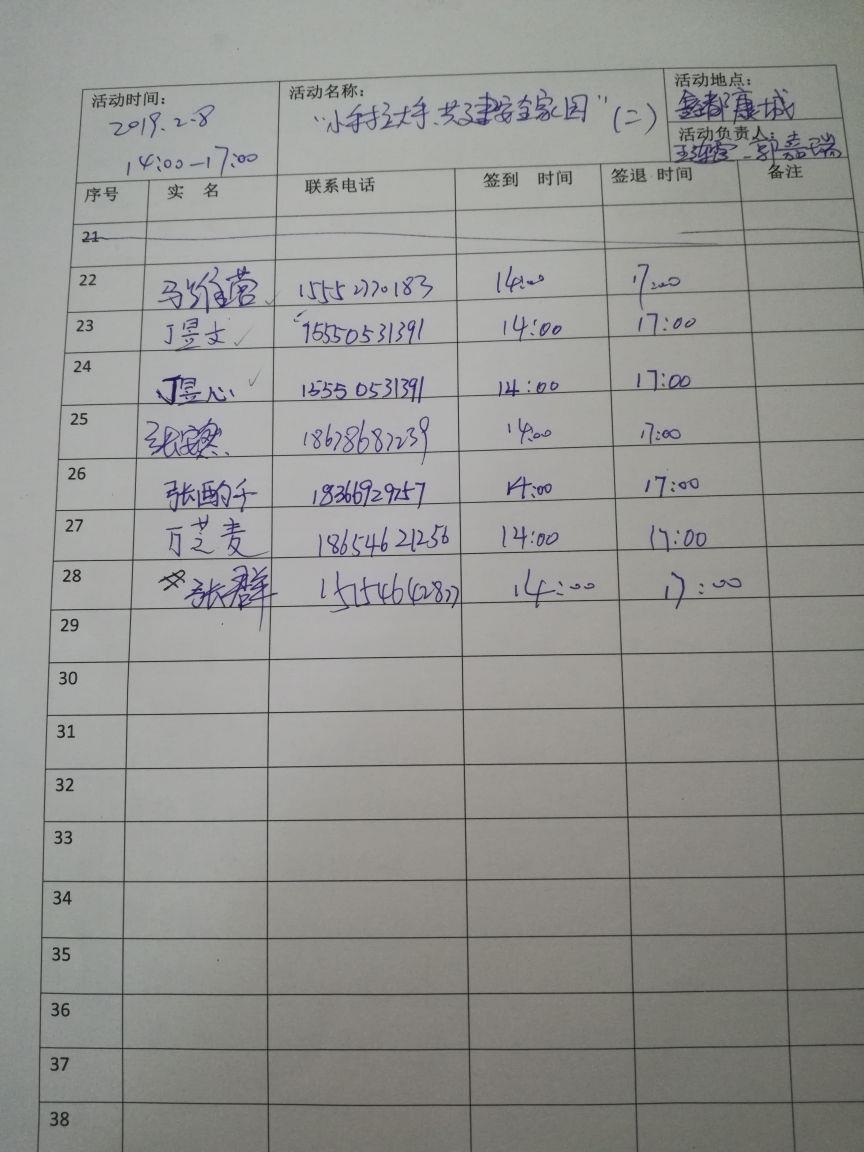 活动时间：
2019.2.8
14:00—17:00
活动名称：
"小手拉大手、共建安全家园"（二）
活动地点：
鑫都康城
活动负责人：
郭嘉瑞
序号 实 名 联系电话 签到 时间 签退 时间 备注
21
22 马维营 15552770183 14:00 17:00
23 丁昱文 15550531391 14:00 17:00
24 丁昱心 15550531391 14:00 17:00
25 18678687239 14:00 17:00
26 张酌千 18366929757 14:00 17:00
27 万芝麦 18654621256 14:00 17:00
28 张群 14:00 17:00
29
30
31
32
33
34
35
36
37
38